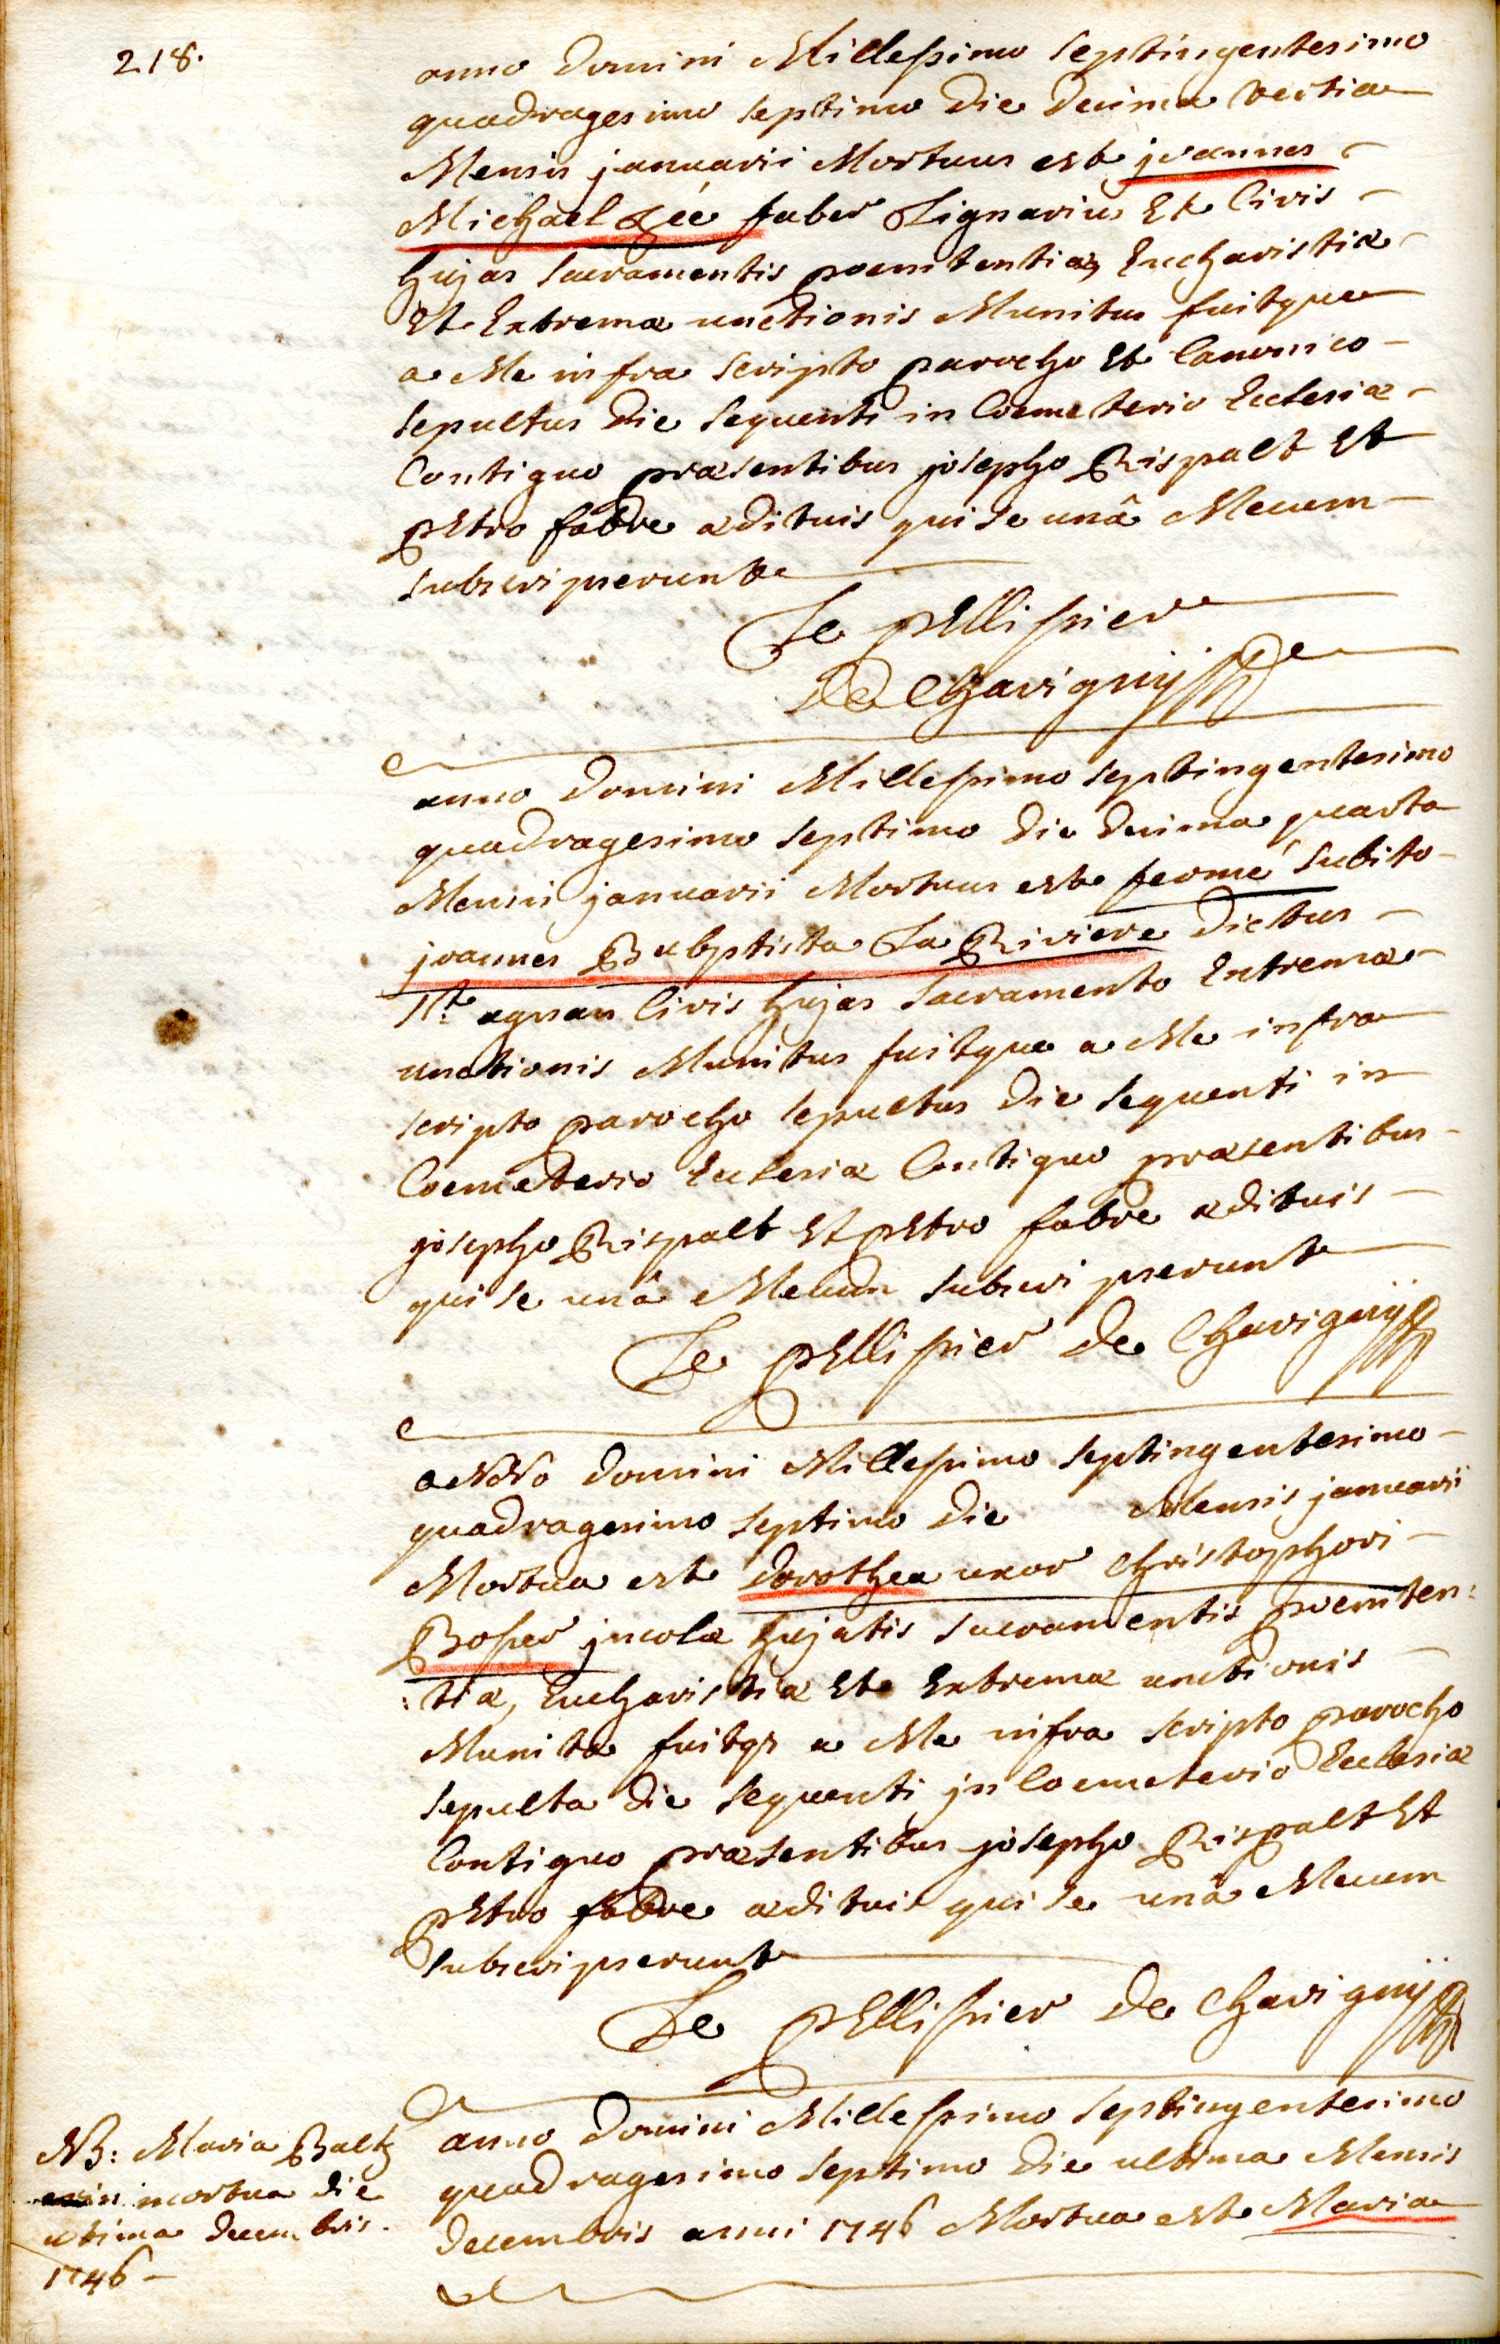 218.
anno Domini Millessimo septingentesimo
quadragesimo septimo die decima tertia
Mensis januarii Mortuus est joannes
Michael Zéé faber Lignarius Et Civis
hujas sacramentis poenitentiæ, Eucharistiæ
Et Extremæ unctionis Munitus fuitque
a Me infra scripto parocho Et Canonico
sepultus die sequenti in Coemeterio Ecclesiæ
Contiguo præsentibus josepho Rispalt Et
pEtro fabre ædituis qui se unâ Mecum
subscripserunt
Le pEllissier
De Chavignÿ
anno Domini Millessimo septingentesimo
quadragesimo septimo die decima quarta
Mensis januarii Mortuus est fermé subito
joannes Babptista La Riviere dictus
St. agnan Civis hujas sacramento Extremæ
unctionis Munitus fuitque a Me infra
scripto parocho sepultus die sequenti in
Coemeterio Ecclesiæ Contiguo præsentibus
josepho Rispalt Et pEtro fabre ædituis
qui se unâ Mecum subscripserunt
Le pEllissier De Chavignÿ
aNNo Domini Millessimo septingentesimo
quadragesimo septimo die Mensis januarii
Mortua est dorothea uxor Christophori
Bosser jncolæ hujatis sacramentis poeniten:
:tiæ, Eucharistiæ Et Extremæ unctionis
Munita fuitq3 a Me infra scripto parocho
sepulta die sequenti jn Coemeterio Ecclesiæ
Contiguo præsentibus josepho Rispalt Et
pEtro fabre ædituis qui se unâ Mecum
subscripserunt
Le pEllissier De Chavignÿ
anno Domini Millessimo septingentesimo
quadragesimo septimo die ultima Mensis
decembris anni 1746 Mortua est Maria
NB: Maria Baltz
mortua die
ultima decembris.
1746